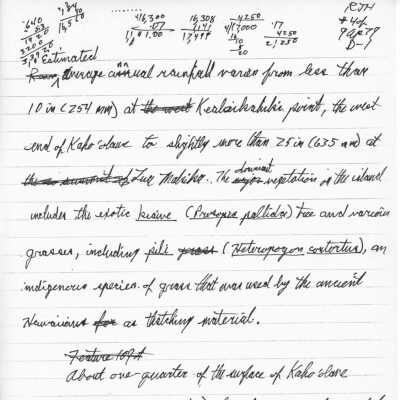 RJH
Estimated
average annual rainfall varies from less than
10 in (254 mm) at the west Kealaikahiki point, the west
end of Kaho'olawe to slightly more than 25 in (635 mm) at
the summit of Lua Makika. The major dominant vegetation on the island
includes the exotic kiawe (Prosopis pallida) tree and various
grasses, including pili grass (Heteropogon contortus), an
indigenous species of grass that was used by the ancient
Hawaiians for as thatching material.
Feature 109A
About one-quarter of the surface of Kaho'olawe